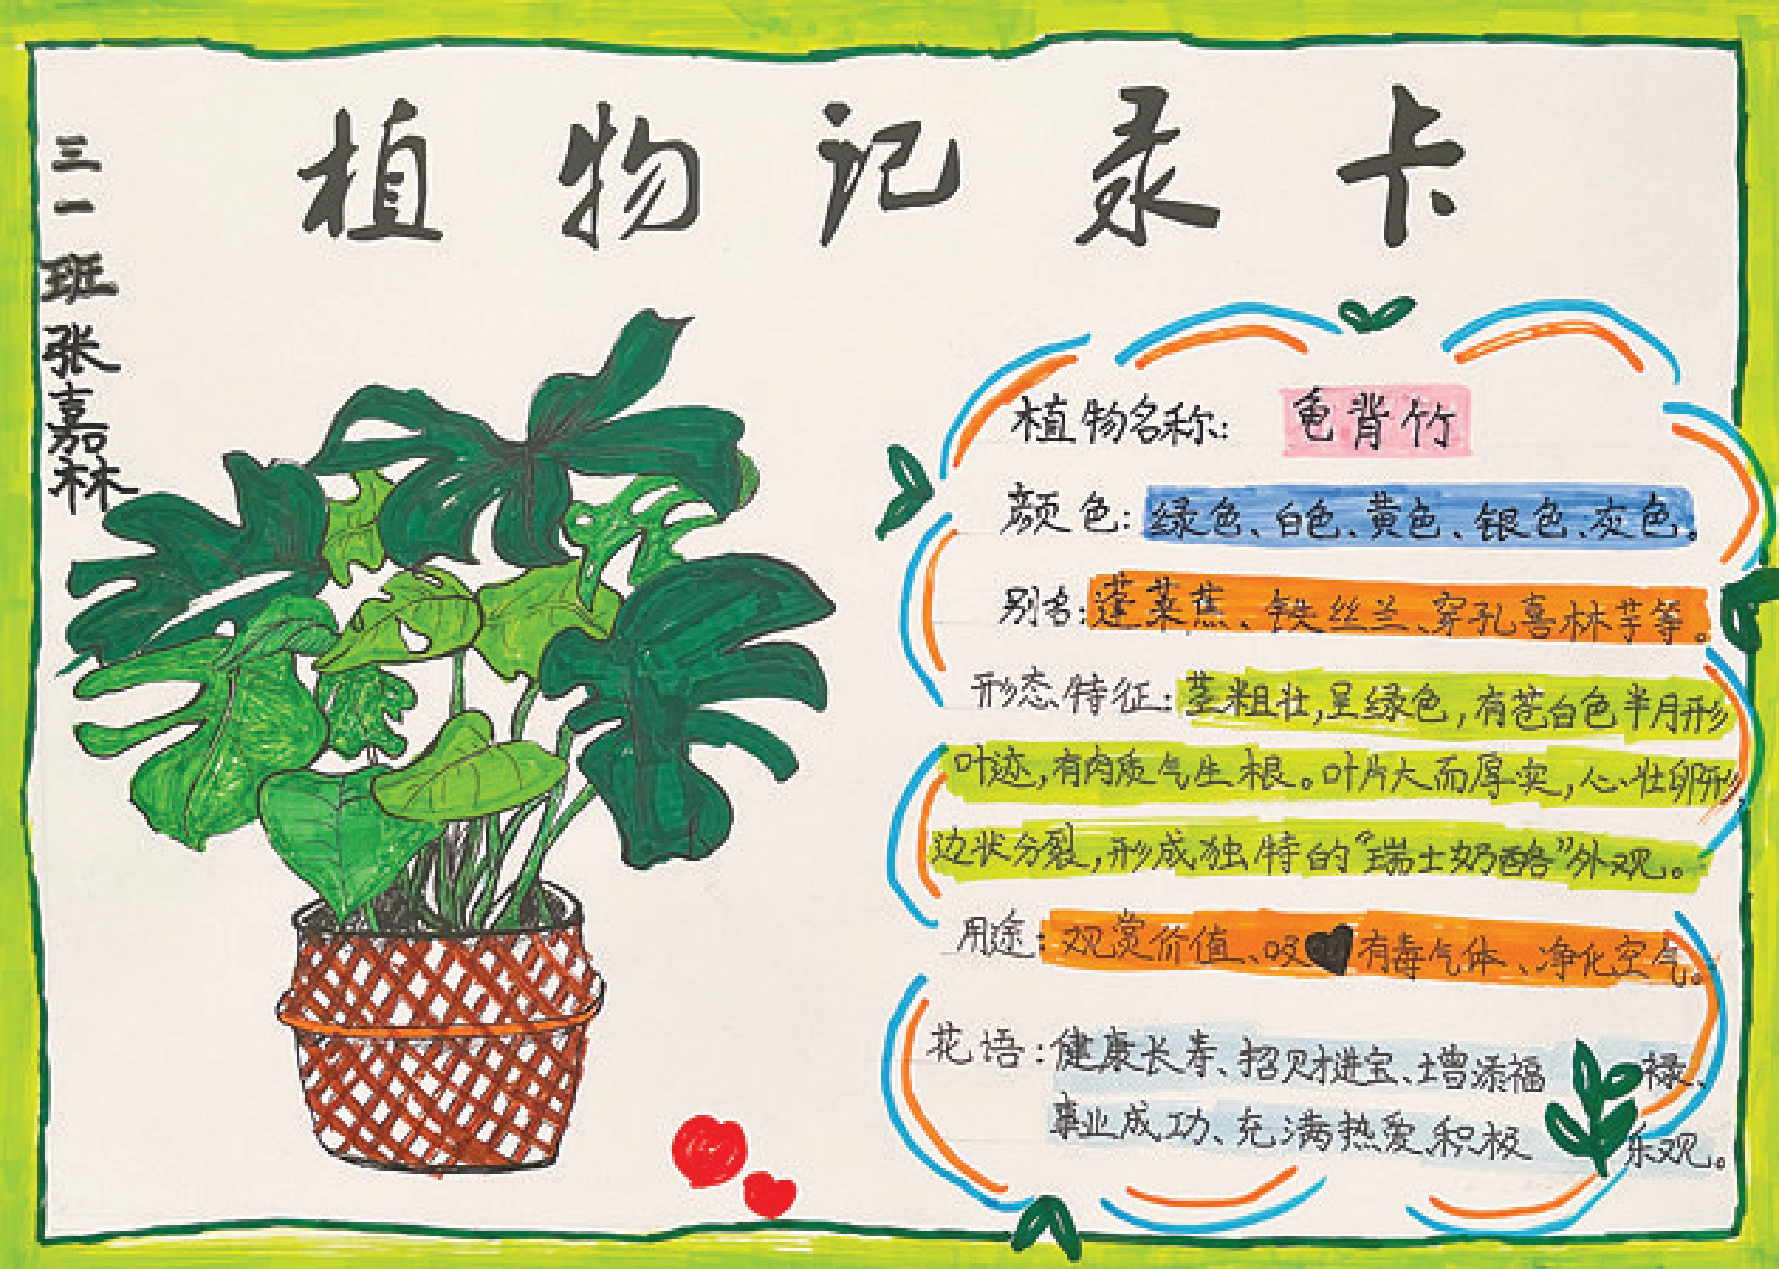 植物记录卡
三一班 张嘉林
植物名称: 龟背竹
颜色: 绿色、白色、黄色、银色、灰色。
别名: 蓬莱蕉、铁丝兰、穿孔喜林芋等。
形态特征: 茎粗壮,呈绿色,有苍白色半月形
叶迹,有肉质气生根。叶片大而厚实,心壮卵形
边状分裂,形成独特的“瑞士奶酪”外观。
用途: 观赏价值、吸有毒气体、净化空气。
花语: 健康长寿、招财进宝、增添福禄、
事业成功、充满热爱、积极乐观。